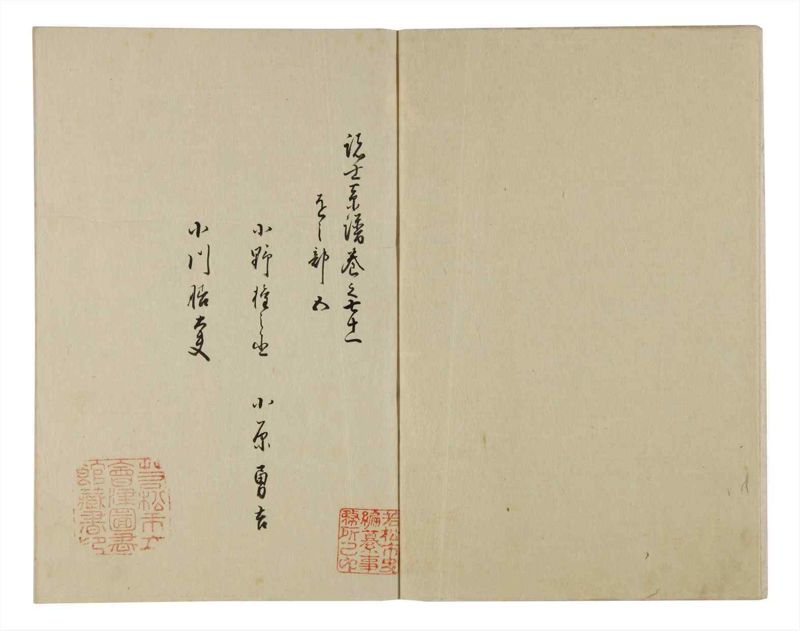 諸士系譜巻之七十一
をし部 五
小野権之丞 小原勇吉
小川
若松市史
編纂事
務所之印
若松市立
會津圖書
館藏書印